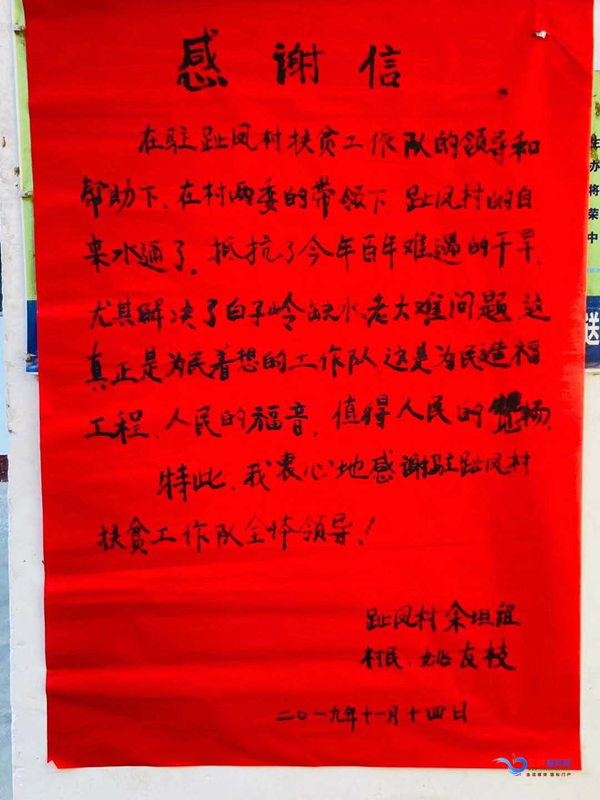 感谢信
在驻趾凤村扶贫工作队的领导和
帮助下、在村两委的带领下、趾凤村的自
来水通了。抵抗了今年百年难遇的干旱、
尤其解决了白子岭缺水老大难问题、这
真正是为民着想的工作队、这是为民造福
工程、人民的福音、值得人民的扬、
特此、我衷心地感谢驻趾凤村
扶贫工作队全体领导！
趾凤村余坦组
村民：姚友枝
二〇一九年十一月十四日
生
办
将
荣
中
送